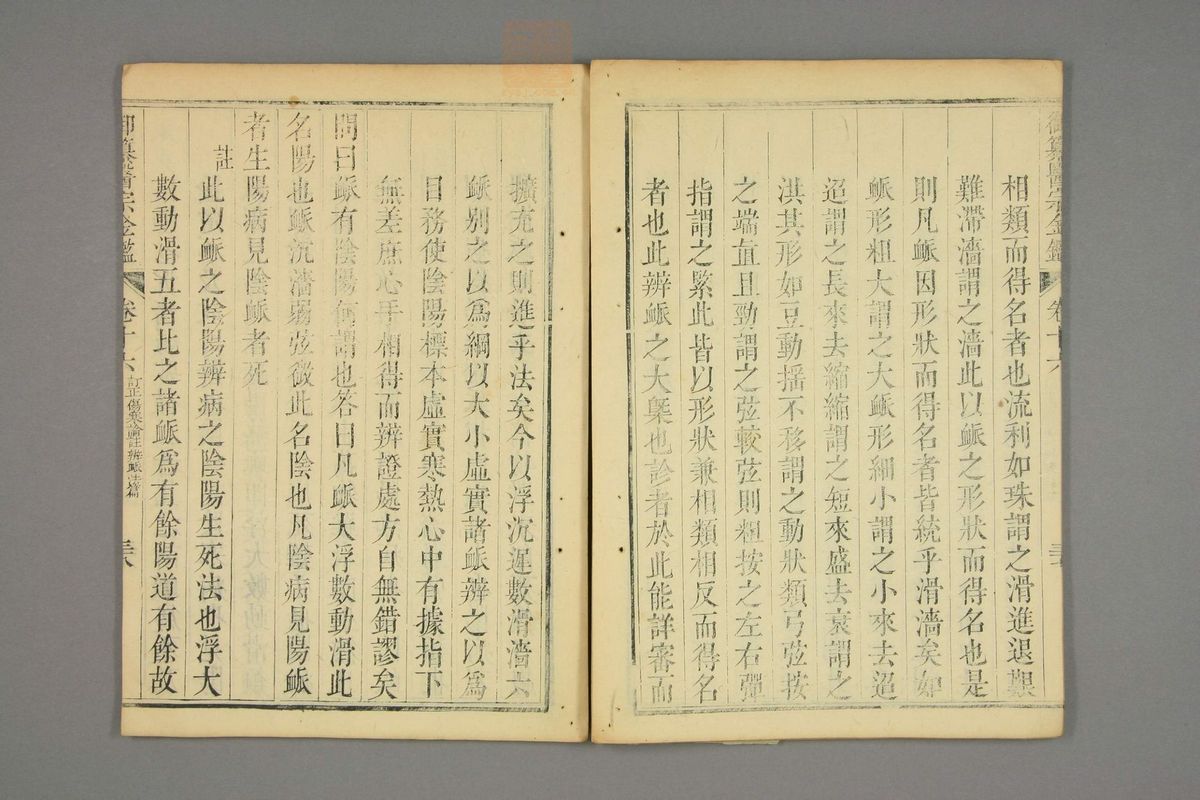 御纂醫宗金鑑 卷十六
相類而得名者也流利如珠謂之滑進退艱
難滯濇謂之濇此以䘑之形狀而得名也是
則凡䘑因形狀而得名者皆統乎滑濇矣如
䘑形粗大謂之大䘑形細小謂之小來去迢
迢謂之長來去縮縮謂之短來盛去衰謂之
洪其形如豆動搖不移謂之動狀類弓弦按
之端直且勁謂之弦較弦則粗按之左右彈
指謂之緊此皆以形狀兼相類相反而得名
者也此辨䘑之大槩也診者於此能詳審而
擴充之則進乎法矣今以浮沉遲數滑濇六
䘑別之以爲綱以大小虛實諸䘑辨之以爲
目務使陰陽標本虛實寒熱心中有據指下
無差庶心手相得而辨證處方自無錯謬矣
問曰䘑有陰陽何謂也答曰凡䘑大浮數動滑此
名陽也䘑沉濇弱弦微此名陰也凡陰病見陽䘑
者生陽病見陰䘑者死
註此以䘑之陰陽辨病之陰陽生死法也浮大
數動滑五者比之諸䘑爲有餘陽道有餘故
御纂醫宗金鑑 卷十六 訂正傷寒論註辨䘑法篇 三八